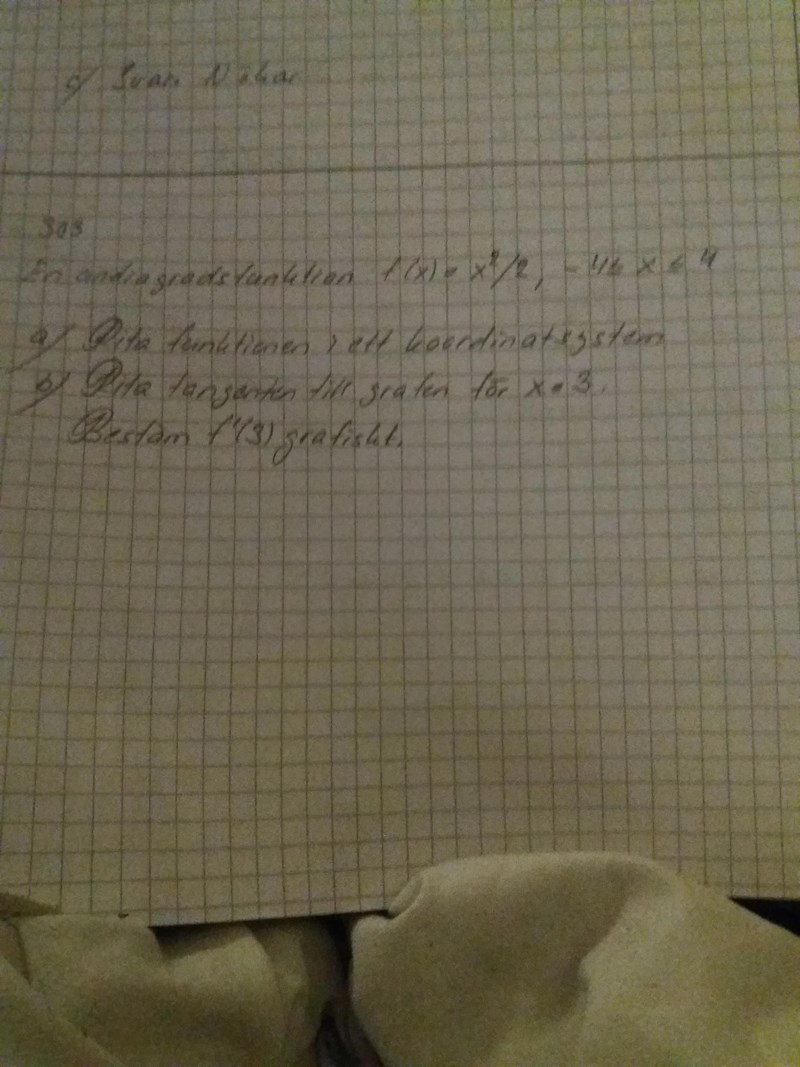 c) Svar: Nähä
303
En andragradsfunktion f(x) = x²/2, -4 ≤ x ≤ 4
a) Rita funktionen i ett koordinatsystem
b) Rita tangenten till grafen för x = 3.
Bestäm f'(3) grafiskt.